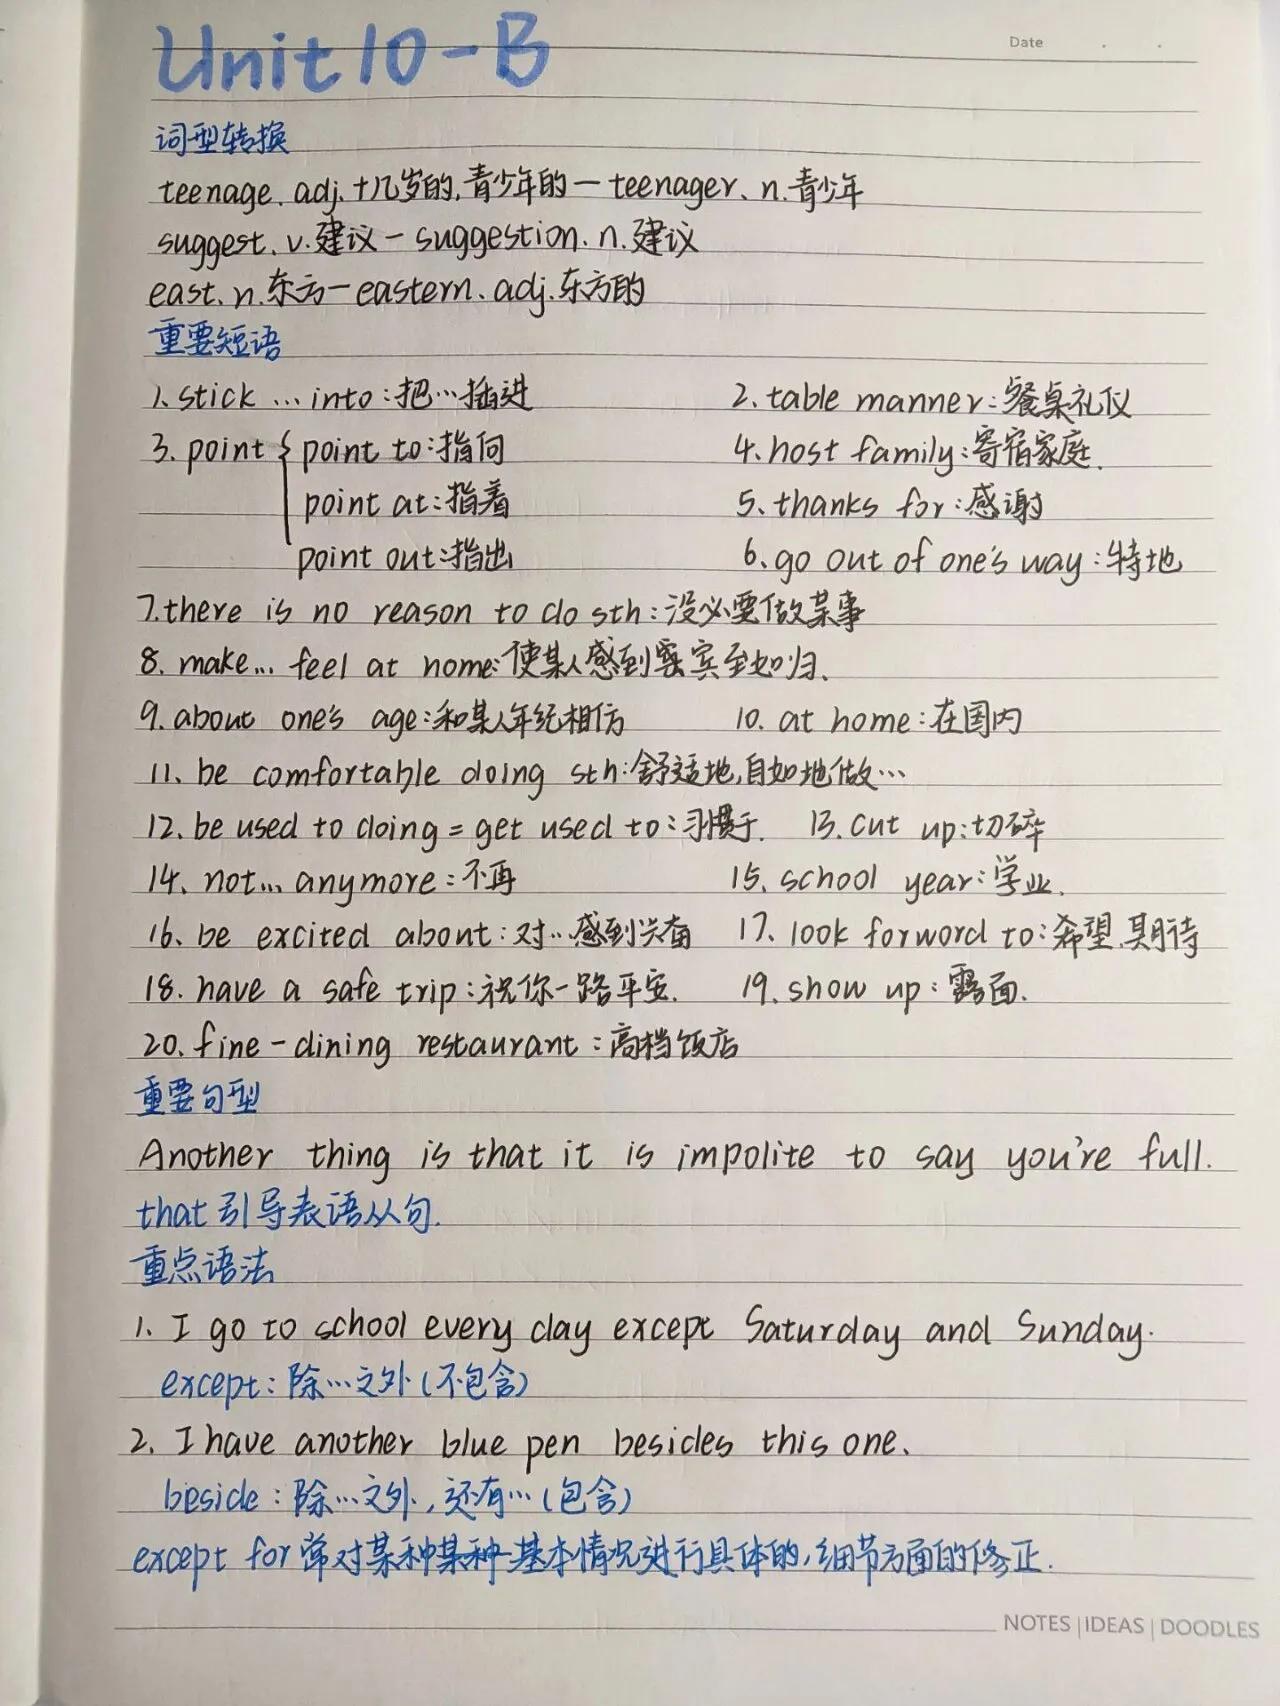 Unit 10-B
Date
词型转换
teenage. adj. 十几岁的, 青少年的 — teenager. n. 青少年
suggest. v. 建议 — suggestion. n. 建议
east. n. 东方 — eastern. adj. 东方的
重要短语
1. stick ... into: 把…插进 2. table manner: 餐桌礼仪
3. point { point to: 指向 4. host family: 寄宿家庭.
point at: 指着 5. thanks for: 感谢
point out: 指出 6. go out of one's way: 特地
7. there is no reason to do sth: 没必要做某事
8. make... feel at home: 使某人感到宾至如归.
9. about one's age: 和某人年纪相仿 10. at home: 在国内
11. be comfortable doing sth: 舒适地, 自如地做…
12. be used to doing = get used to: 习惯于. 13. cut up: 切碎
14. not... anymore: 不再 15. school year: 学业.
16. be excited about: 对…感到兴奋 17. look forword to: 希望, 期待
18. have a safe trip: 祝你一路平安. 19. show up: 露面.
20. fine-dining restaurant: 高档饭店
重要句型
Another thing is that it is impolite to say you're full.
that 引导表语从句.
重点语法
1. I go to school every day except Saturday and Sunday.
except: 除…之外 (不包含)
2. I have another blue pen besides this one.
beside: 除…之外, 还有… (包含)
except for 常对某种某种基本情况进行具体的, 细节方面的修正.
NOTES | IDEAS | DOODLES